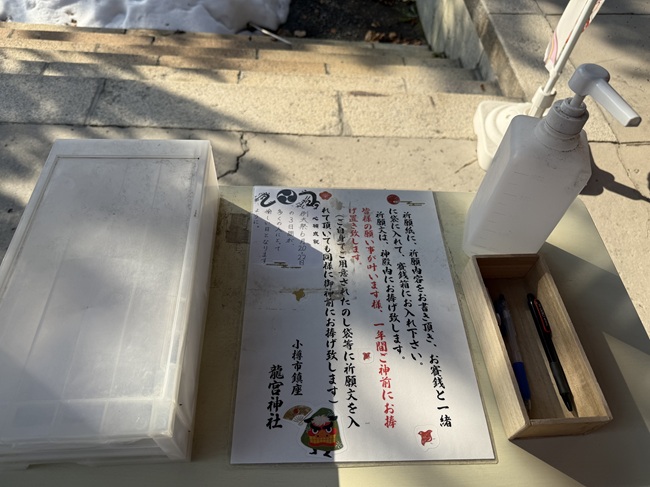 祈願紙に、祈願内容をお書き頂き、お賽銭と一緒
に袋に入れて、賽銭箱にお入れ下さい。
祈願文は、神殿内にお捧げ致します。
皆様の願い事が叶います様、一年間ご神前にお捧
げ置き致します。
(ご自身でご用意されたのし袋等に祈願文を入
れて頂いても同様に御神前にお捧げ致します)
小樽市鎮座
龍宮神社